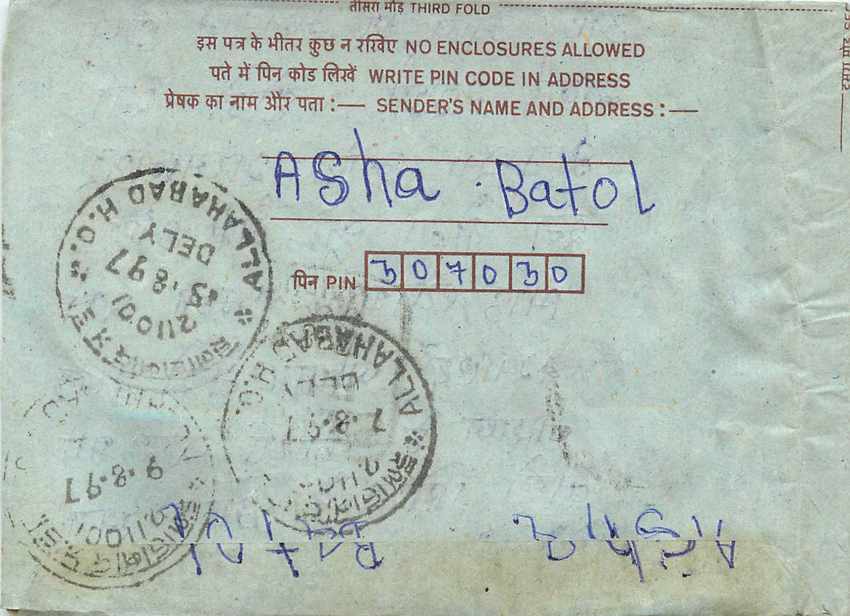 तीसरा मोड़ THIRD FOLD
इस पत्र के भीतर कुछ न रखिए NO ENCLOSURES ALLOWED
पते में पिन कोड लिखें WRITE PIN CODE IN ADDRESS
प्रेषक का नाम और पता :— SENDER'S NAME AND ADDRESS :—
Asha . Batol
पिन PIN 307030
ALLAHABAD H.O.
DELY
5.8.97
211001
ALLAHABAD H.O.
DELY
7.8.97
9.8.97
211001
Asha Batol